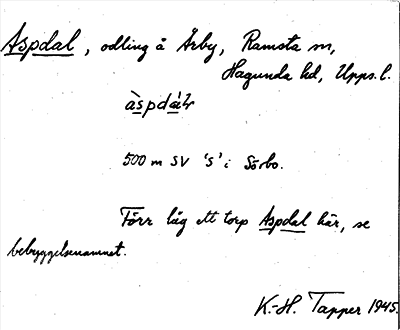 Aspdal, odling å Ärby, Ramsta sn,
Hagunda hd, Upps. l.
àspdáł
500 m SV 's' i Sörbo.
Förr låg ett torp Aspdal här, se
bebyggelsenamnet.
K.-H. Tapper 1945.